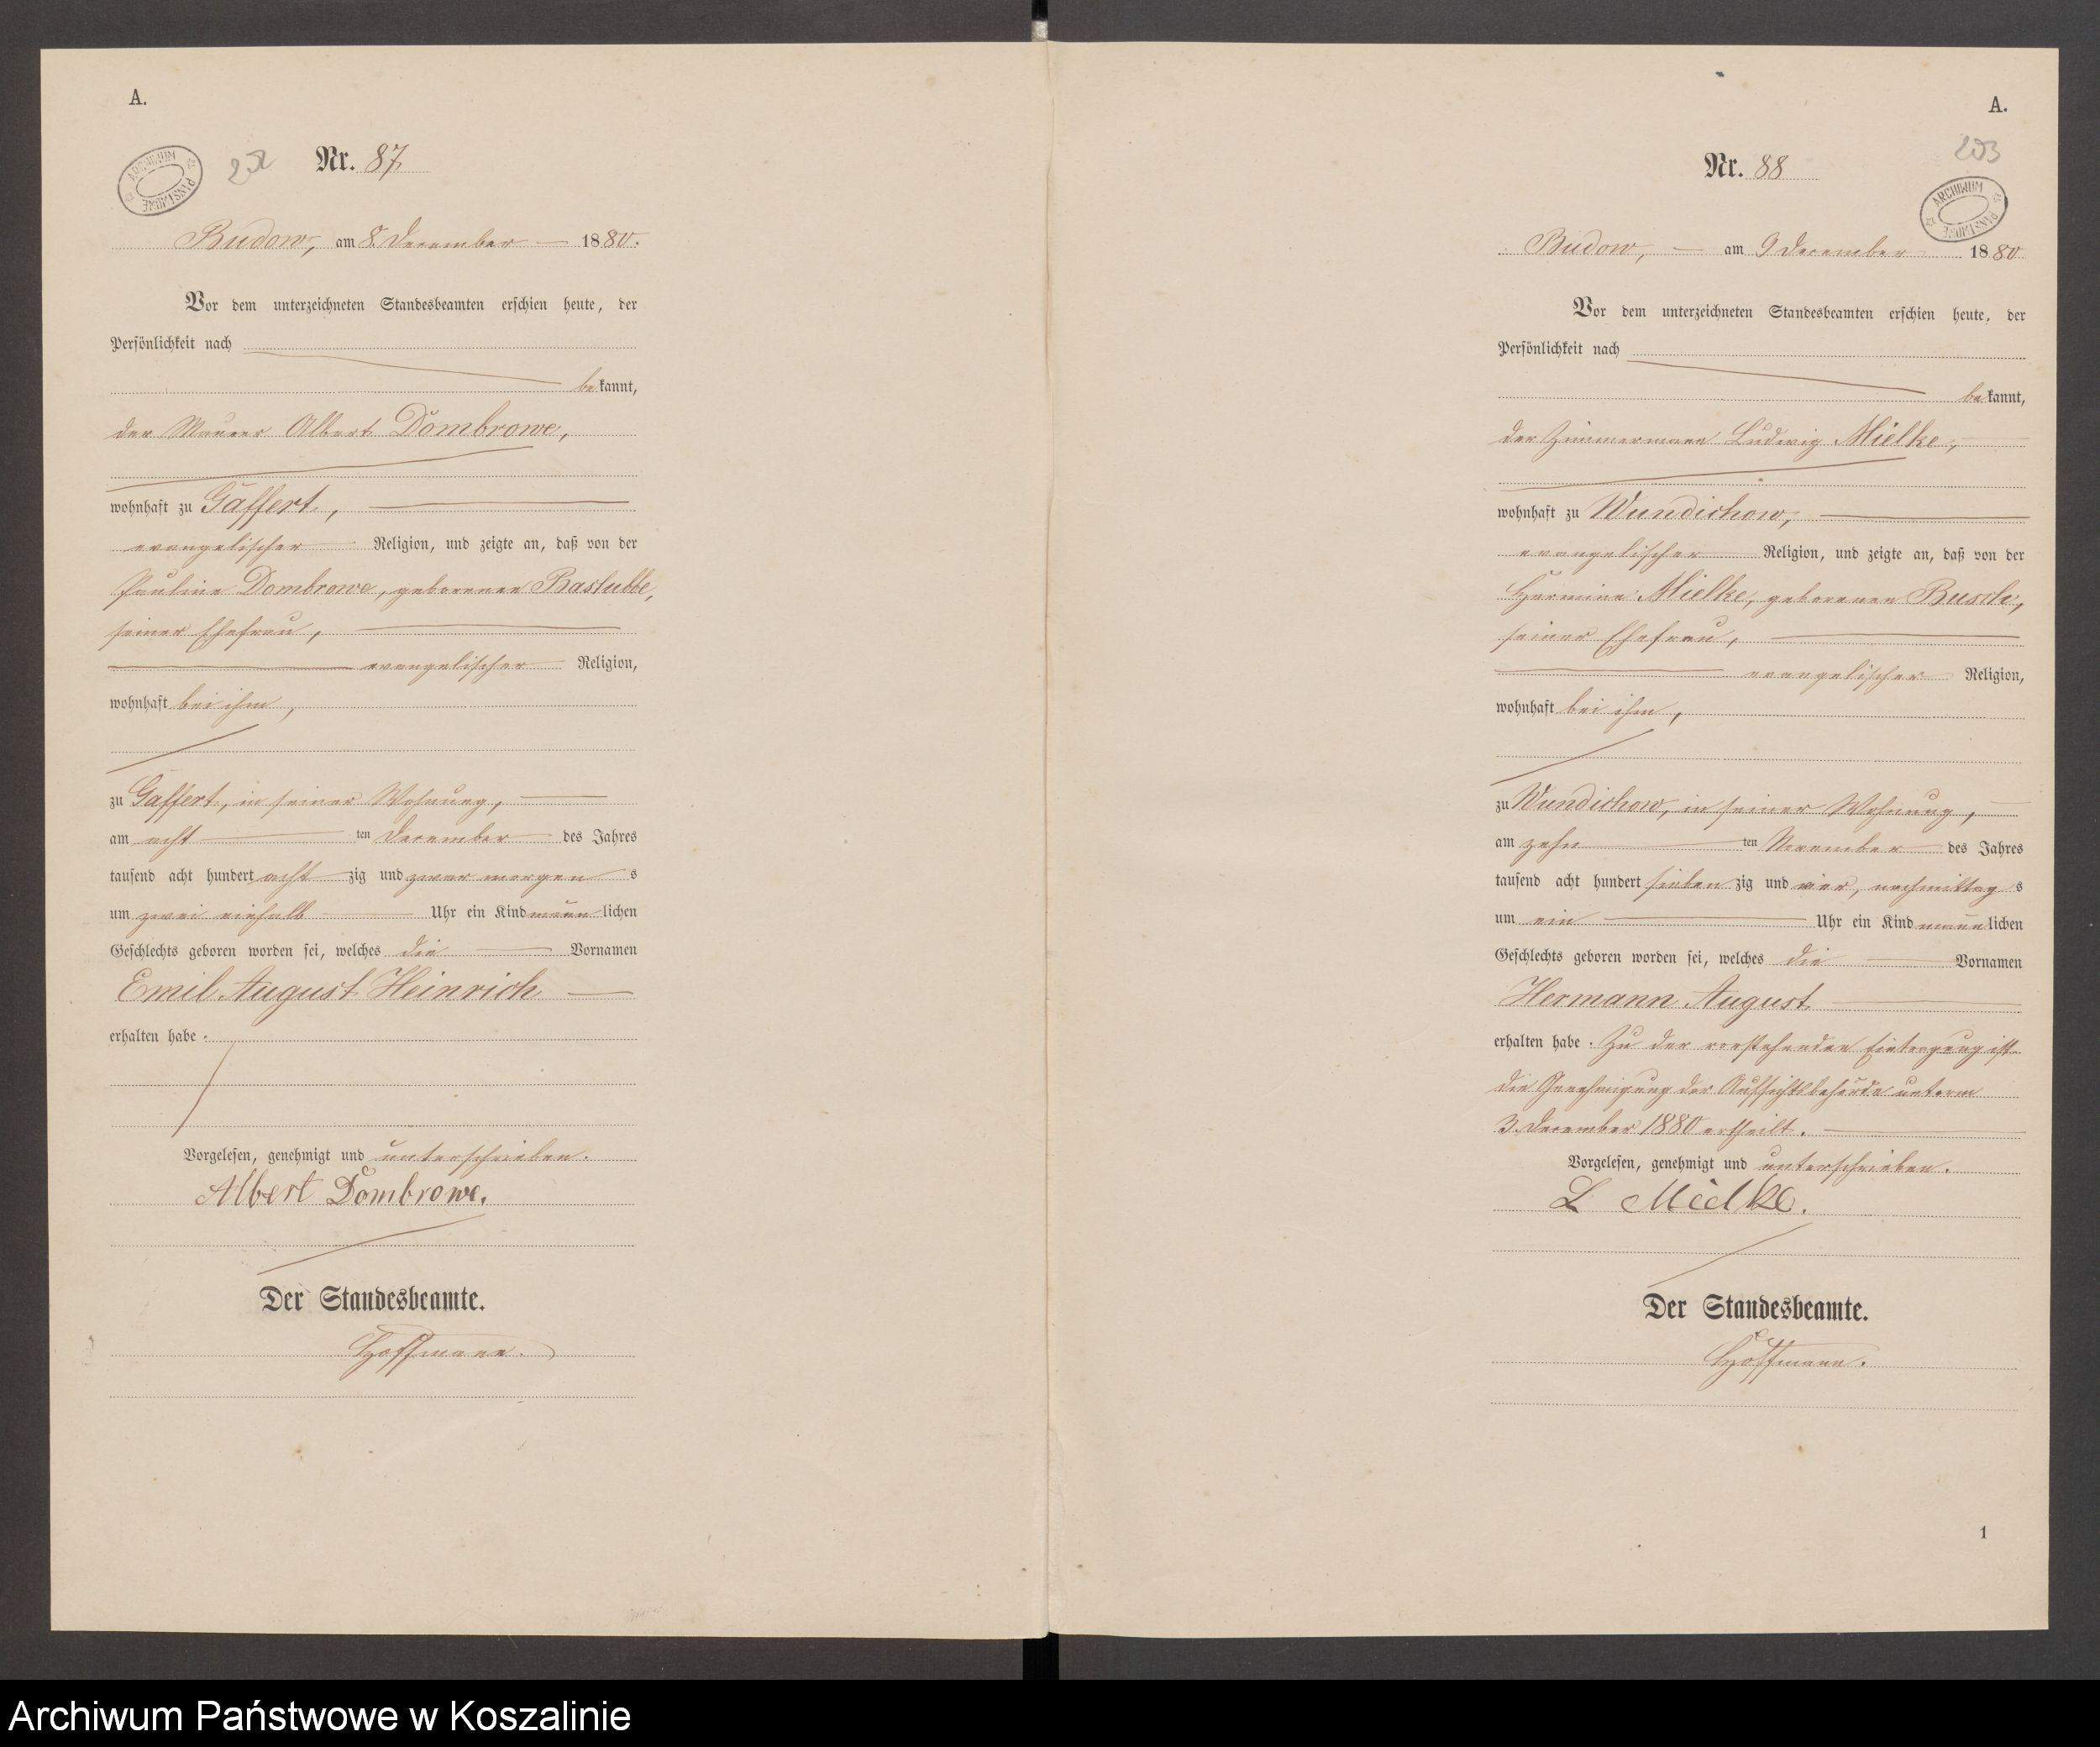 A.
ARCHIWUM PAŃSTWOWE
252
Nr. 87.
Budow, am 8. December 1880.
Vor dem unterzeichneten Standesbeamten erschien heute, der
Persönlichkeit nach
bekannt,
der Maurer Albert Dombrowe,
wohnhaft zu Gaffert,
evangelischer Religion, und zeigte an, daß von der
Pauline Dombrowe, geborenen Baslubbe,
seiner Ehefrau,
evangelischer Religion,
wohnhaft bei ihm,
zu Gaffert, in seiner Wohnung,
am acht ten December des Jahres
tausend acht hundert acht zig und zwar morgen s
um zwei einhalb Uhr ein Kind männlichen
Geschlechts geboren worden sei, welches die Vornamen
Emil August Heinrich
erhalten habe.
Vorgelesen, genehmigt und unterschrieben.
Albert Dombrowe.
Der Standesbeamte.
Hoffmann.
A.
203
Nr. 88
ARCHIWUM PAŃSTWOWE
Budow, am 9 December 1880
Vor dem unterzeichneten Standesbeamten erschien heute, der
Persönlichkeit nach
bekannt,
der Zimmermann Ludwig Mielke,
wohnhaft zu Wundichow,
evangelischer Religion, und zeigte an, daß von der
Hermine Mielke, geborenen Busch,
seiner Ehefrau,
evangelischer Religion,
wohnhaft bei ihm,
zu Wundichow, in seiner Wohnung,
am zehn ten November des Jahres
tausend acht hundert sieben zig und vier, nachmittag s
um ein Uhr ein Kind männlichen
Geschlechts geboren worden sei, welches die Vornamen
Hermann August
erhalten habe. Zu der vorstehenden Eintragung ist
die Genehmigung der Aufsichtsbehörde unterm
3. December 1880 ertheilt.
Vorgelesen, genehmigt und unterschrieben.
L Mielke.
Der Standesbeamte.
Hoffmann.
1
Archiwum Państwowe w Koszalinie